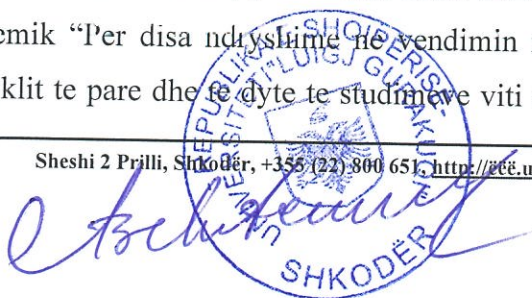 emik “Per disa ndryshime në vendimin
klit te pare dhe të dyte te studimeve viti
Sheshi 2 Prilli, Shkodër, +355 (22) 800 651, http://ëëë.u
REPUBLIKA E SHQIPERISE
UNIVERSITETI "LUIGJ GURAKUQI"
SHKODËR